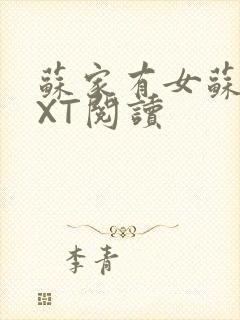 蘇家有女蘇
XT閱讀
李青